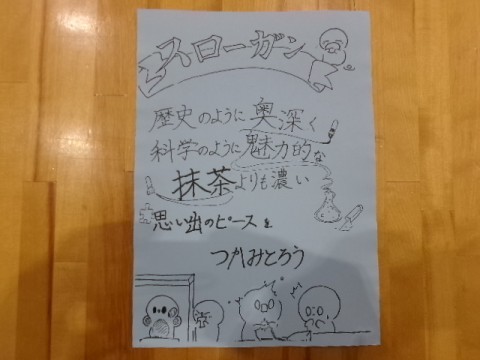 スローガン
歴史のように奥深く
科学のように魅力的な
抹茶よりも濃い
思い出のピースを
つかみとろう